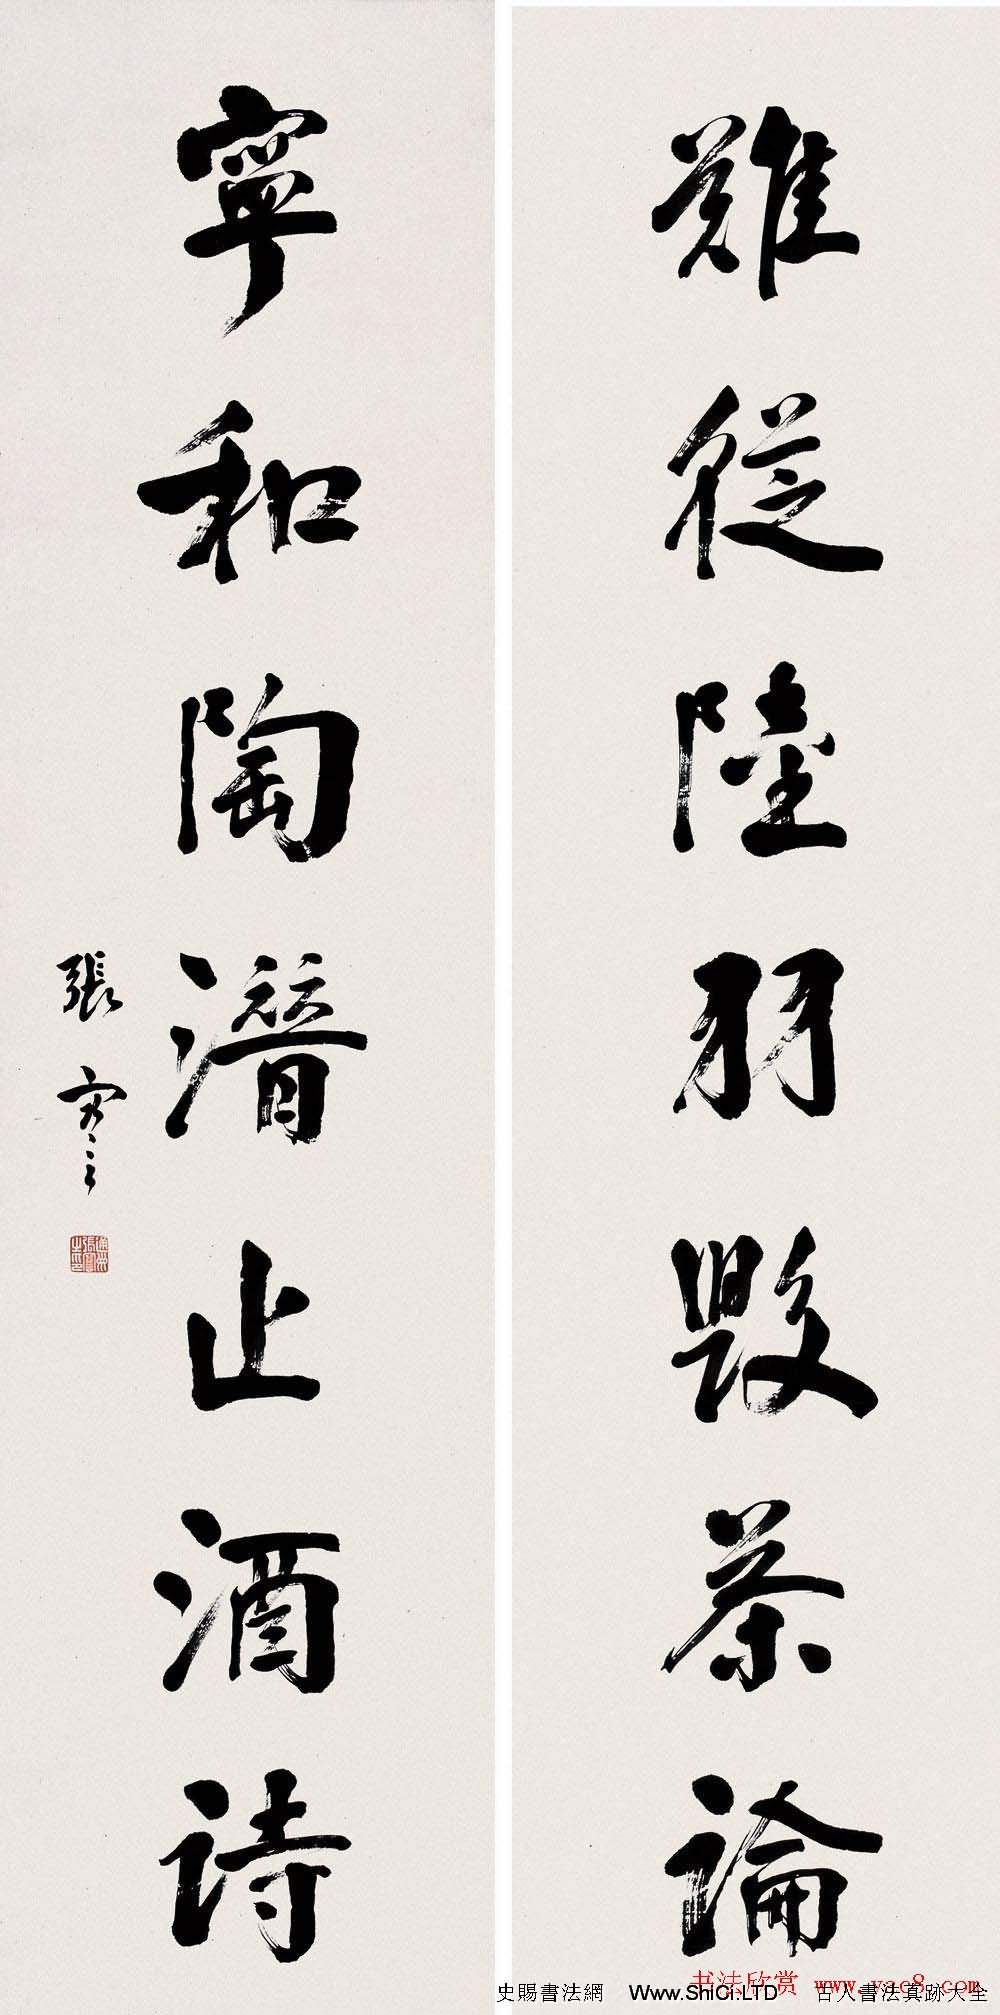 難從陸羽毀茶論
寧和陶潛止酒詩
張謇
书法欣赏 www.yac8.com
史賜書法網 Www.ShiCi.LTD 古人書法真跡大全